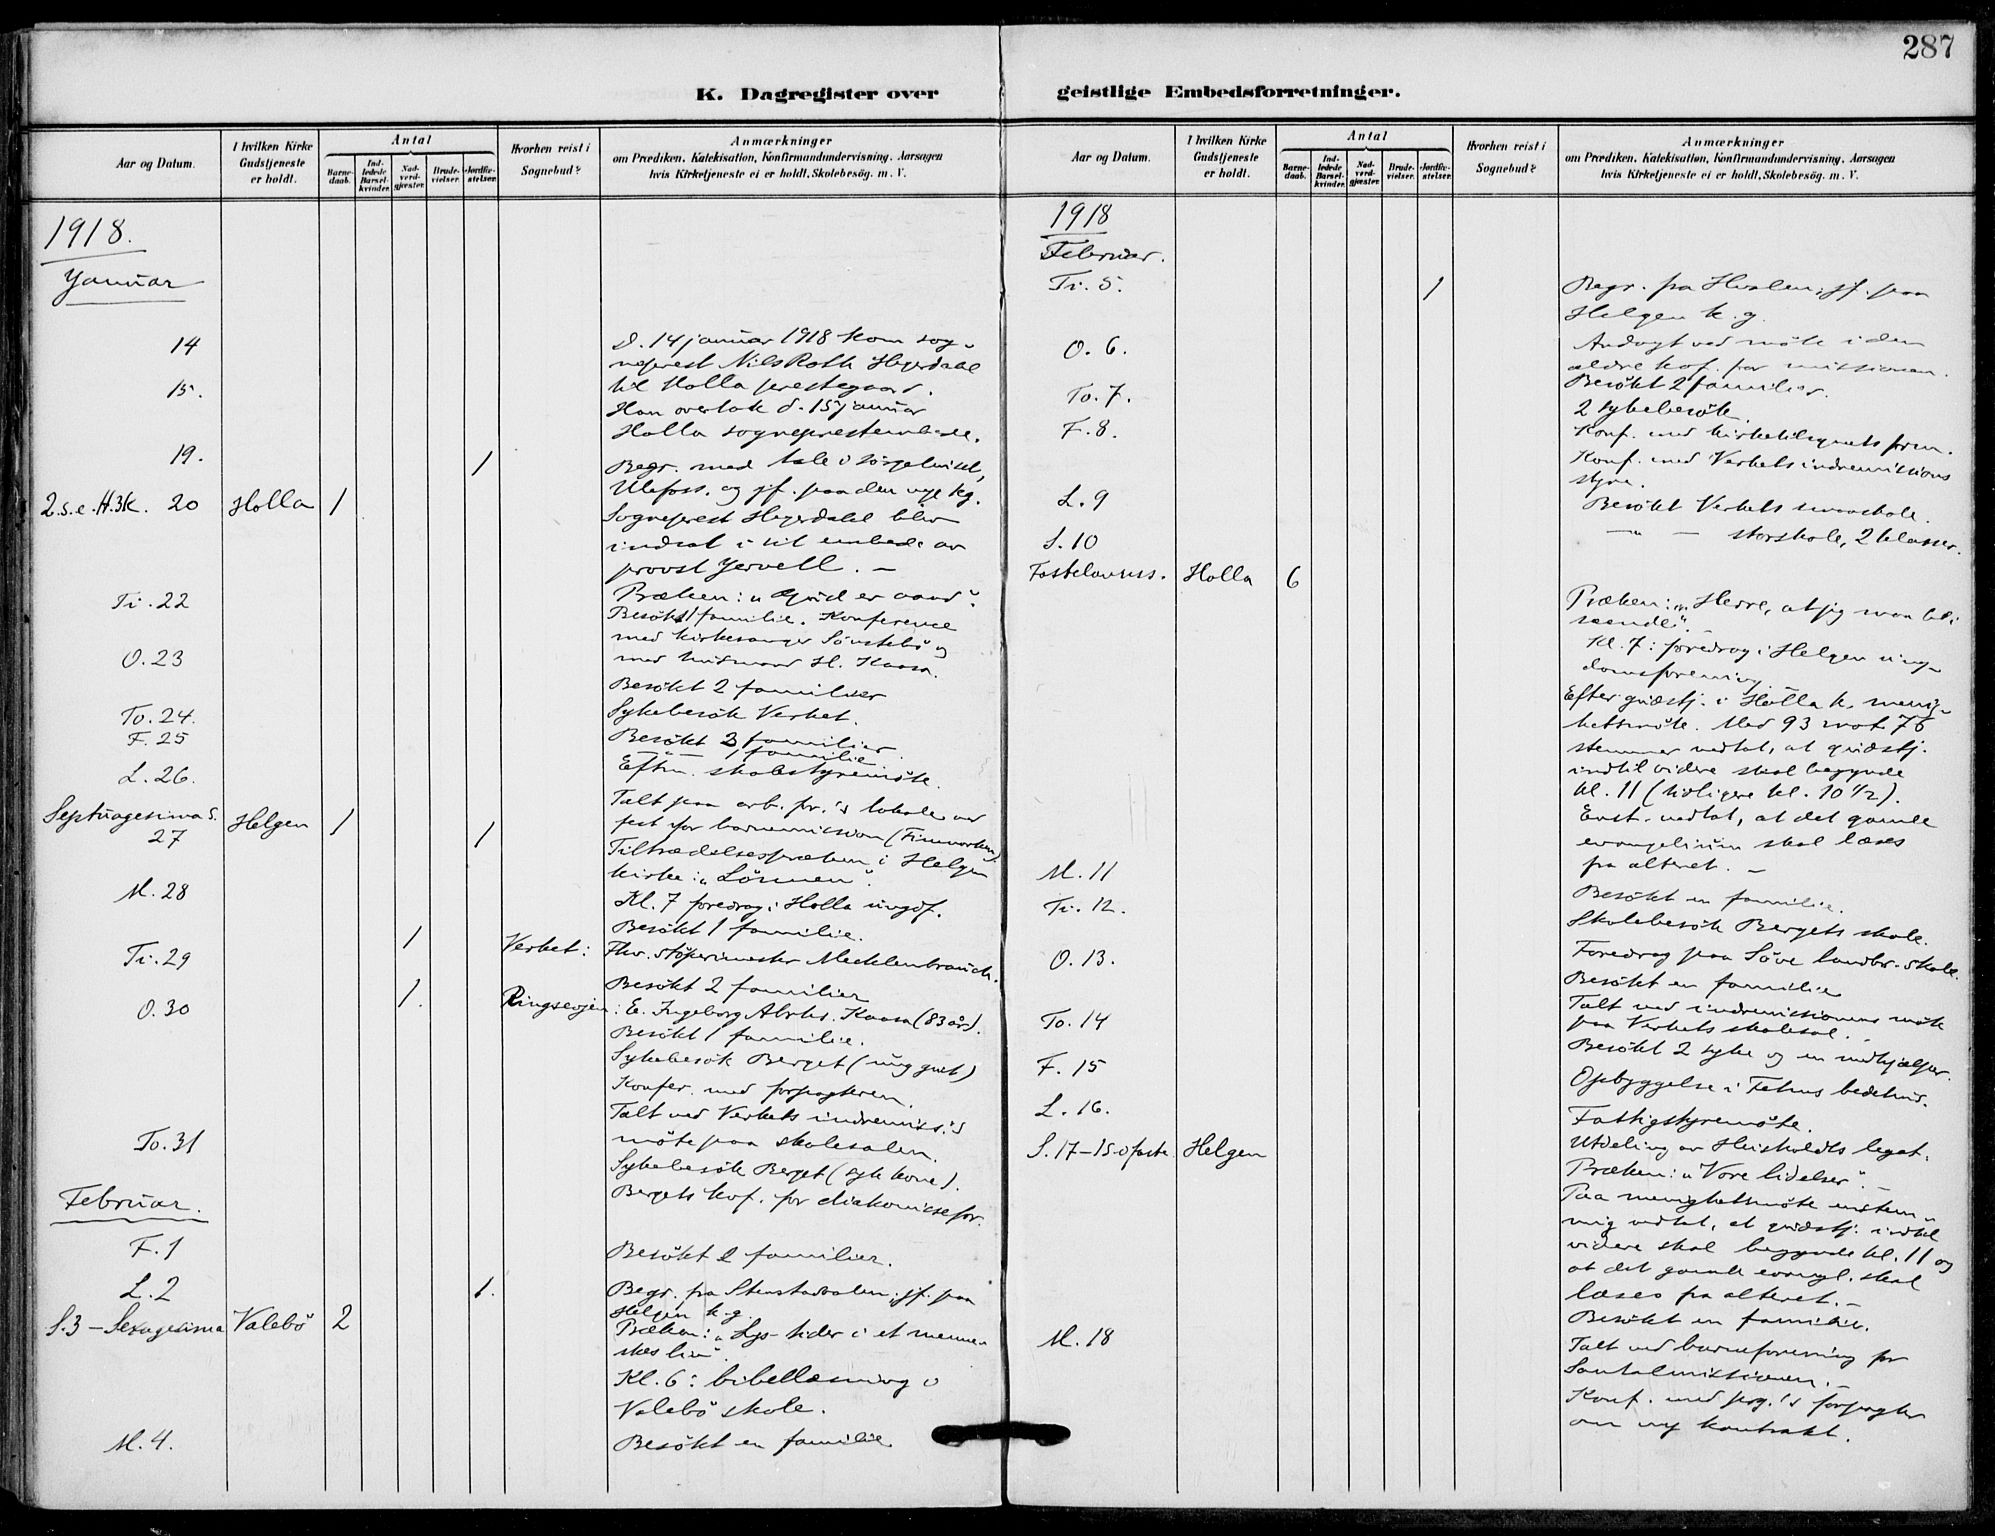 287
K. Dagregister over geistlige Embedsforretninger.
Aar og Datum.
I hvilken Kirke Gudstjeneste er holdt.
Antal
Barnedaab.
Indledede Barselkvinder.
Nadverdgjester.
Brudevielser.
Jordfæstelser.
Hvorhen reist i Sognebud?
Anmærkninger
om Prædiken, Katekisation, Konfirmandundervisning, Aarsagen
hvis Kirketjeneste ei er holdt, Skolebesøg. m. V.
1918.
Januar
14
d. 14 januar 1918 kom sog-
neprest Nils Roth Heyerdahl
til Holla prestegaard.
15.
Han overtok d. 15 januar
Holla sogneprestembede.
19.
1
Begr. med tale i sørgehuset,
Ulefoss, og jf. paa den nye kg.
2. s. e. H.3K. 20
Holla
1
Sogneprest Heyerdahl blev
indsat i sit embede av
provst Jervell. —
Præken: "Gud er aand".
Ti. 22
Besøkt 1 familie. Konference
med kirkesanger Sønstebø og
O. 23
med H. Kaasa.
Besøkt 2 familier
To. 24.
Sykebesøk Verket.
F. 25
Besøkt 3 familier
familie
L. 26.
Eftm. skolestyremøte.
Talt paa arb. for.'s lokale ved
fest for barnemission (Finmarken)
Septuagesima S. 27
Helgen
1
1
Tiltrædelsespræken i Helgen
kirke: "Lönnen".
M. 28
Kl. 7 foredrag i Holla ungdf.
Besøkt 1 familie.
Ti. 29
1
Verket:
Fhv. støperimester Mecklenbrauck.
Besøkt 2 familier
O. 30
1.
Ringsevjen
: E. Ingeborg Abrhs. Kaasa (83 år).
Besøkt 1 familie.
Sykebesøk Berget (ung gut)
Konfer. med forpagteren.
Talt ved Verkets indremiss.'s
To. 31
møte paa skolesalen.
Sykebesøk Berget (syk kone).
Bergets kvf. for diakonissefor.
Februar.
F. 1
Besøkt 2 familier.
L. 2
1.
Begr. fra Stenstaddalen, jf. paa
Helgen k.g.
S. 3 – Sexagesima
Valebö
2
Præken: "Lys-tider i et menne-
skes liv".
Kl. 6: bibellæsning i
Valebö skole.
M. 4.
Besøkt en familie
1918
Februar.
Ti. 5.
1
Begr. fra Hvalen, jf. paa
Helgen k.g.
O. 6.
Andagt ved møte i den
ældre kvf. for missionen.
To. 7.
Besøkt 2 familier.
2 sykebesøk
F. 8.
Konf. med kirketilsynets form.
Konf. med Verkets indremissions
styre.
L. 9
Besøkt Verkets smaaskole.
S. 10
— " — storskole, 2 klasser.
Fastelavnss.
Holla
6
Præken: "Herre, at jeg maa bli
seende".
Kl. 7: foredrag i Helgen ung-
domsforening
Efter gudstj. i Holla k. menig-
hetsmøte. Med 93 mot 76
stemmer vedtat, at gudstj.
indtil videre skal begynde
kl. 11 (tidligere kl. 10 1/2).
Enst. vedtat, at det gamle
evangelium skal læses
fra alteret. —
M. 11
Besøkt en familie.
Ti. 12.
Skolebesøk Bergets skole.
O. 13.
Foredrag paa Söve landbr. skole.
Besøkt en familie
To. 14
Talt ved indremissionens møte
paa Verkets skolesal.
F. 15
Besøkt 2 syke og en medhjælper.
Opbyggelse i Fehus bedehus.
L. 16.
Fattigstyremøte.
Utdeling av legat.
S. 17 – 1 S. i faste
Helgen
Præken: "Vore lidelser". —
Paa menighetsmøte enstem-
mig vedtat, at gudstj. indtil
videre skal begynde kl. 11 og
at det gamle evangl. skal
læses fra alteret. —
Besøkt en familie.
M. 18
Talt ved barneforening for
Santalmissionen. —
Konf. med prg.'s forpagter
om ny kontrakt.